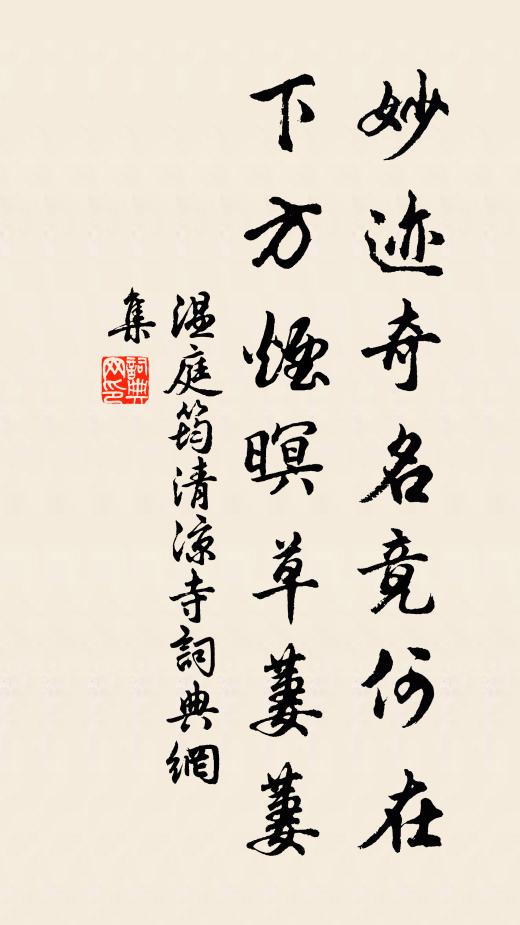 妙迹奇名竟何在
下方煙暝草萋萋
溫庭筠清涼寺詞典網
集
詞典
网印